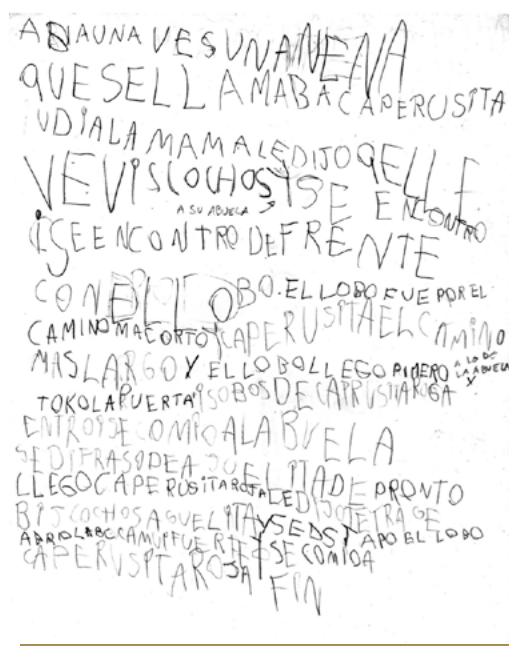 ABIAUNA VES UNA NENA
QUESELLAMABACAPERUSITA
UDIALAMAMALEDIJOQELLE
VEVISCOCHOS Y SE ENCONTRO
A SU ABUELA
ISEENCONTRO DE FRENTE
CON EL LOBO. EL LOBO FUE POR EL
CAMINO MACORTO Y CAPERUSITAELCAMINO
MAS LARGO Y EL LOBOLLEGO PIMERO A LO DE LAABUELA Y
TOKOLAPUERTA ISOBOSDECAPRUSITAROGA
ENTROISECOMIOALABUELA
SEDIFRASODEA
LLEGOCAPERUSITAROJALEDIJO DE PRONTO
BISCOCHOSAGUELITAYSEDSTAPO EL LOBO
CAPERUSITAROJA Y SECOMIOA
FIN